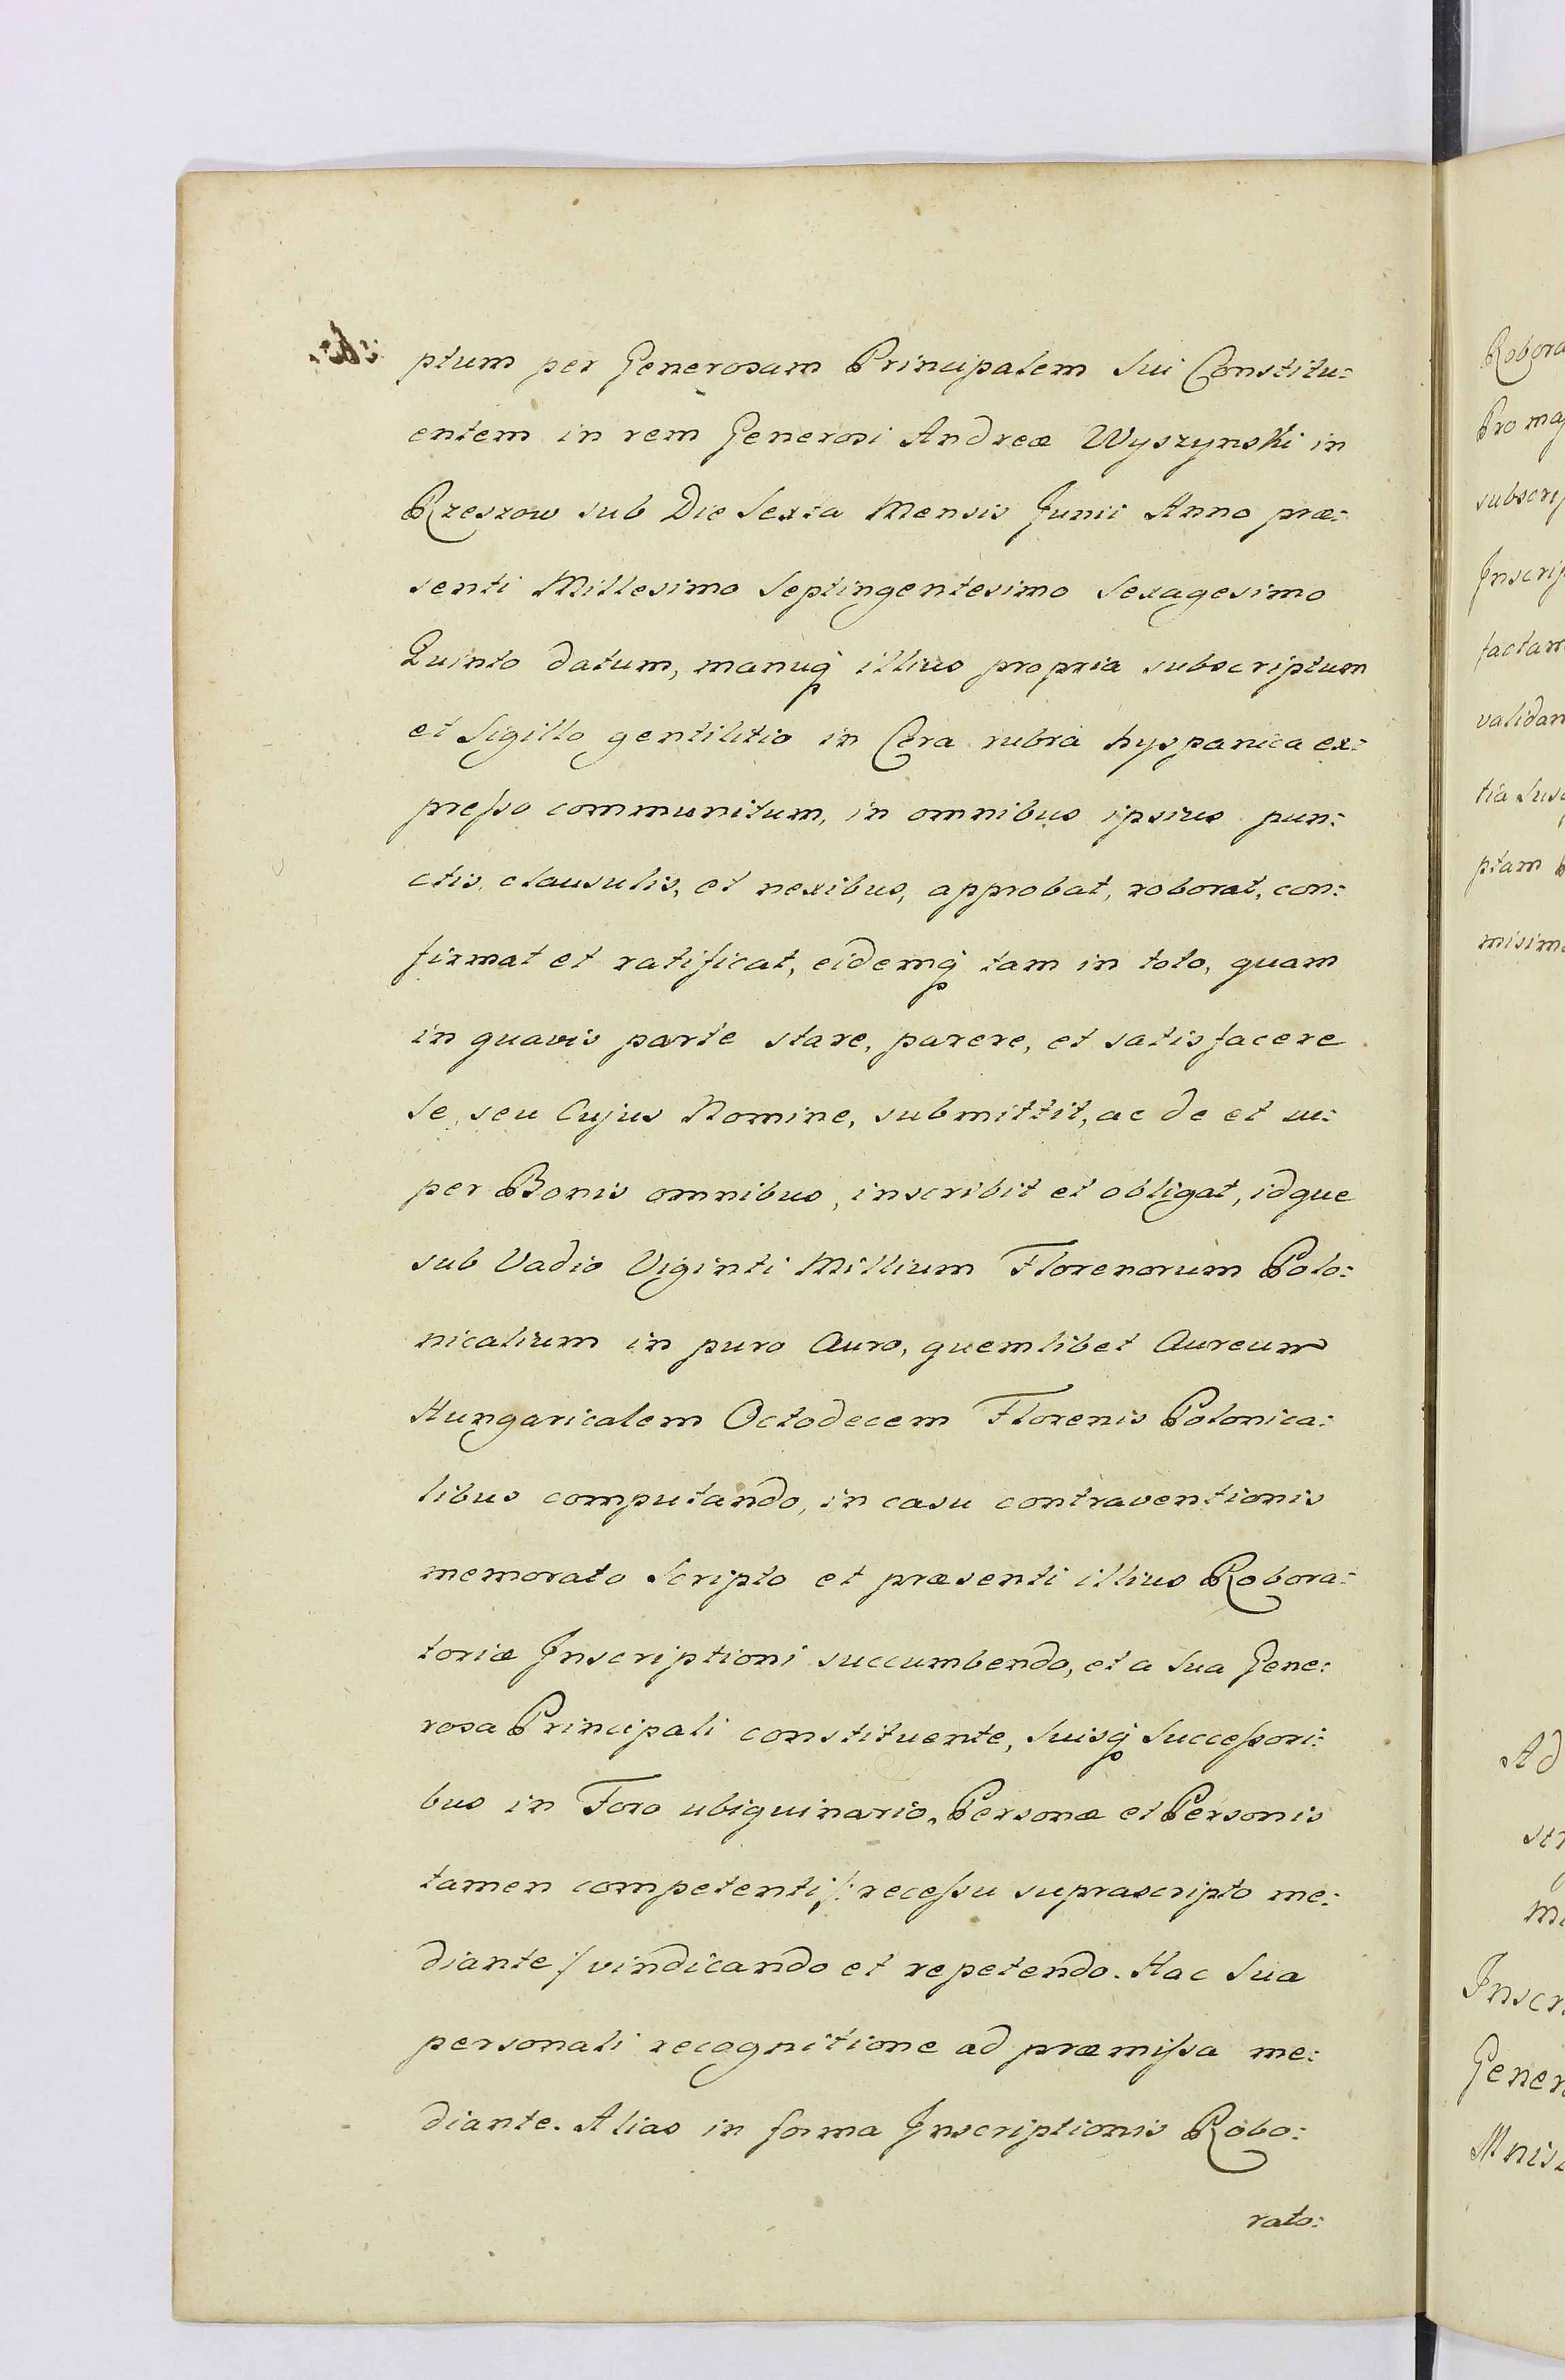 ptum per Generosam Principalem sui Constitu:
entem in rem Generosi Andreæ Wyszynski in
Rzeszow sub Die Sexta Mensis Junii Anno præ:
senti Millesimo Septingentesimo Sexagesimo
Quinto datum, manuq̃ illius propria subscriptum
et Sigillo gentilitio in Cera rubra hyspanica ex:
preſso communitum, in omnibus ipsius pun:
ctis, clausulis, et nexibus, approbat, roborat, con:
firmat et ratificat, eidemq̃ tam in toto, quam
in quavis parte stare, parere, et satisfacere
se, seu Cujus Nomine, submittit, ac de et su:
per Bonis omnibus, inscribit et obligat, idque
sub Vadio Viginti Millium Florenorum Polo:
nicalium in puro Auro, quemlibet Aureum
Hungaricalem Octodecem Florenis Polonica:
libus computando, in casu contraventionis
memorato Scripto et præsenti illius Robora:
toriæ Inscriptioni succumbendo, et a sua Gene:
rosa Principali constituente, suisq̃ Succeſsori:
bus in Foro ubiquinario, Personæ et Personis
tamen competenti /: receſsu suprascripto me:
diante :/ vindicando et repetendo. Hac sua
personali recognitione ad præmiſsa me:
diante. Alias in forma Inscriptionis Robo:
rato:
Robora
Pro maj
subscrip
Inscrip
factam
validam
tia
ptam
misimo
Ad
Inscri
Gener
Mnisz